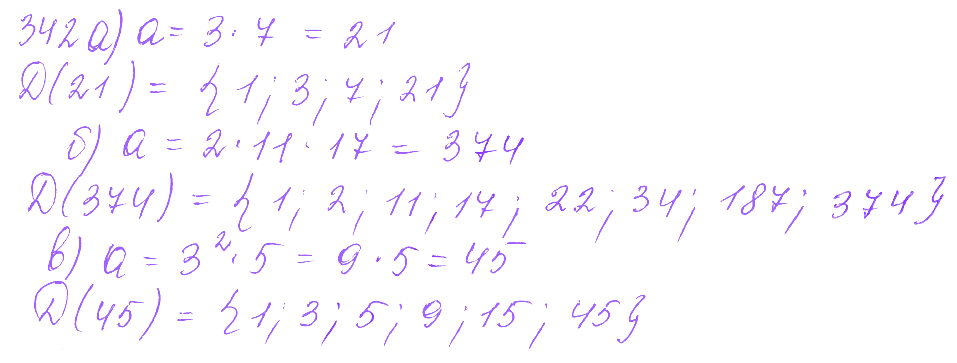 342 а) a = 3 · 7 = 21
D(21) = {1; 3; 7; 21}
б) a = 2 · 11 · 17 = 374
D(374) = {1; 2; 11; 17; 22; 34; 187; 374}
в) a = 3² · 5 = 9 · 5 = 45
D(45) = {1; 3; 5; 9; 15; 45}